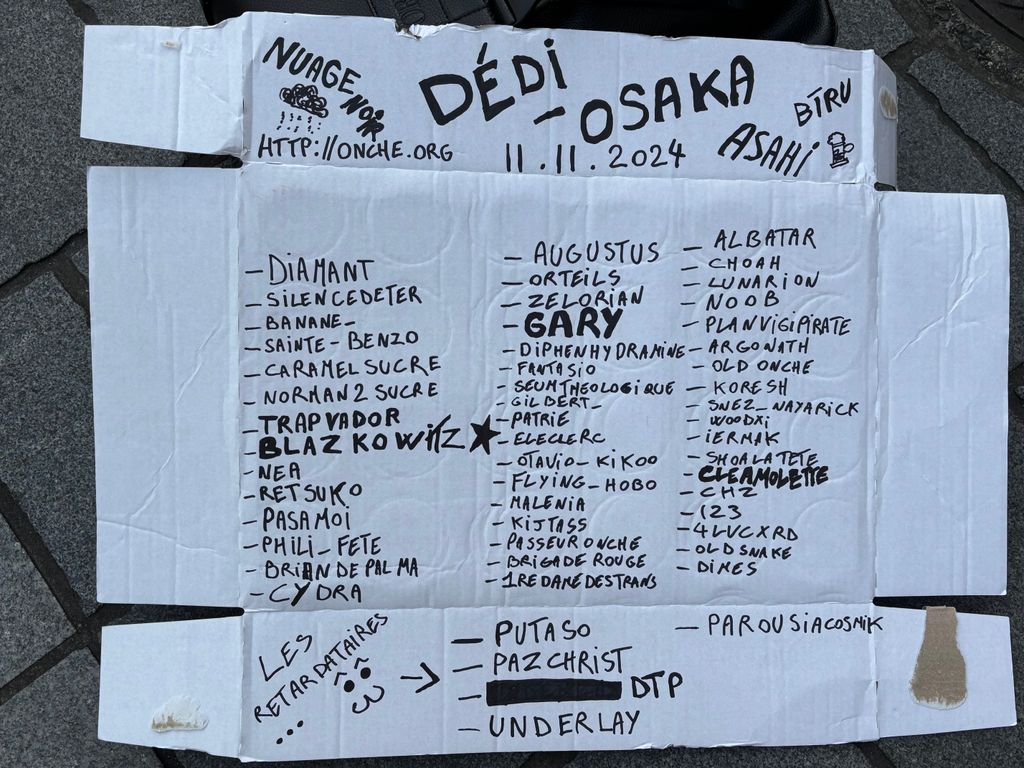 NUAGE NOIR
DÉDI - OSAKA
BĪRU
ASAHI
HTTP://ONCHE.ORG
11.11.2024
- DIAMANT
- SILENCEDETER
- BANANE-
- SAINTE-BENZO
- CARAMELSUCRE
- NORMAN2SUCRE
- TRAPVADOR
- BLAZKOWITZ
- NEA
- RETSUKO
- PASAMOI
- PHILI_FETE
- BRIANDEPALMA
- CYDRA
- AUGUSTUS
- ORTEILS
- ZELORIAN
- GARY
- DIPHENHYDRAMINE
- FANTASIO
- SEUMTHEOLOGIQUE
- GILBERT_
- PATRIE
- ELECLERC
- OTAVIO_KIKOO
- FLYING_HOBO
- MALENIA
- KIJTASS
- PASSEURONCHE
- BRIGADE ROUGE
- 1REDAMEDESTRANS
- ALBATAR
- CHOAH
- LUNARION
- NOOB
- PLANVIGIPIRATE
- ARGONATH
- OLD ONCHE
- KORESH
- SNEZ_NAYARICK
- WOODXI
- IERMAK
- SHOALATETE
- CLEAMOLETTE
- CHZ
- 123
- 4LUCXRD
- OLDSNAKE
- DIMES
LES
RETARDATAIRES
...
- PUTASO
- PAZCHRIST
- DTP
- UNDERLAY
- PAROUSIACOSMIK